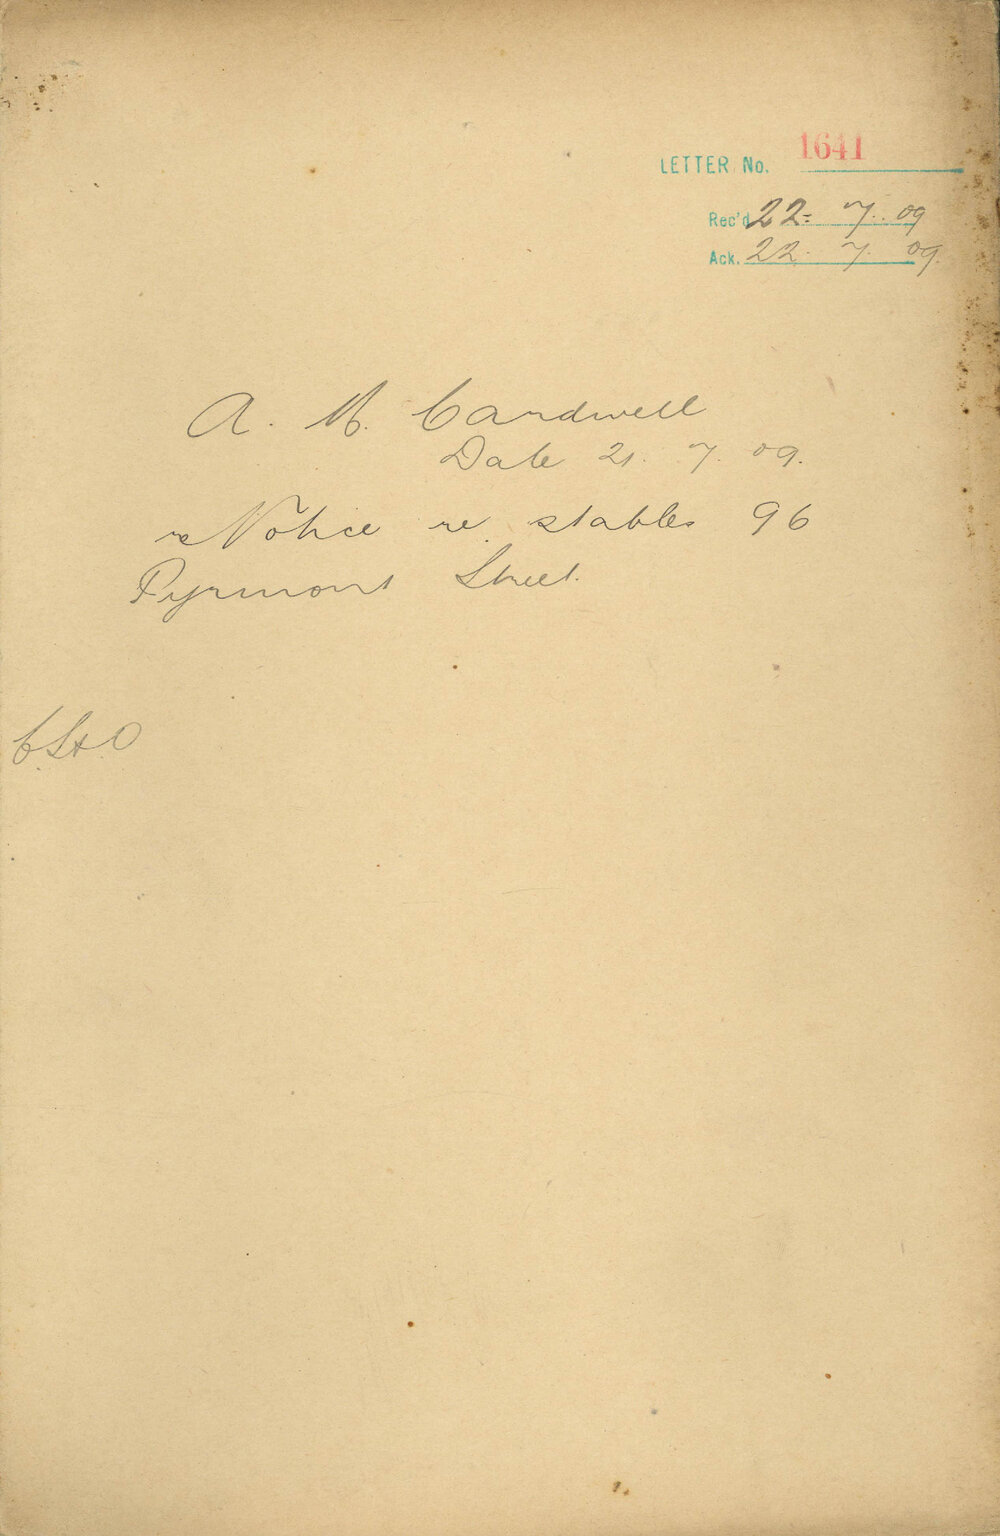 LETTER No. 1641
Rec'd 22. 7. 09
Ack. 22. 7. 09.
A. M. Cardwell
Date 21. 7. 09.
re Notice re stables 96
Pyrmont Street.